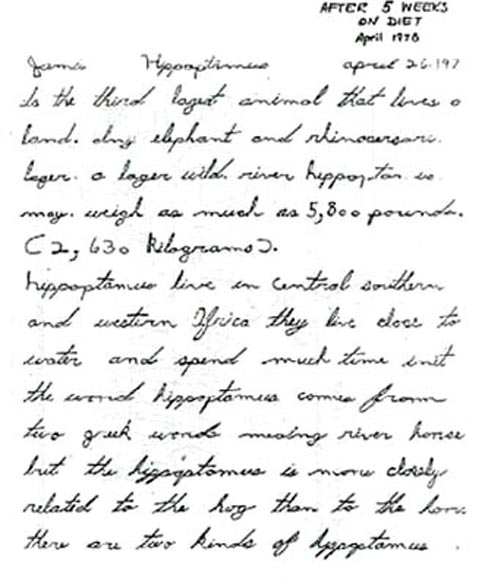 AFTER 5 WEEKS
ON DIET
April 1978
Jamie Hippoptimus april 26.197
Is the third lagest animal that lives o
land. dny elephant and rhinocersari.
lager. a lager wild. river hippoptan
may. weigh as much as 5,800 pounds.
(2,630 kilograms).
hippoptamus live in central southern
and western Africa they live close to
water and spend much time init
the word hippoptamus comes from
two greek words meaing river horse
but the hippoptamus is more closely
related to the hog than to the hors.
there are two kinds of hippopotamus .